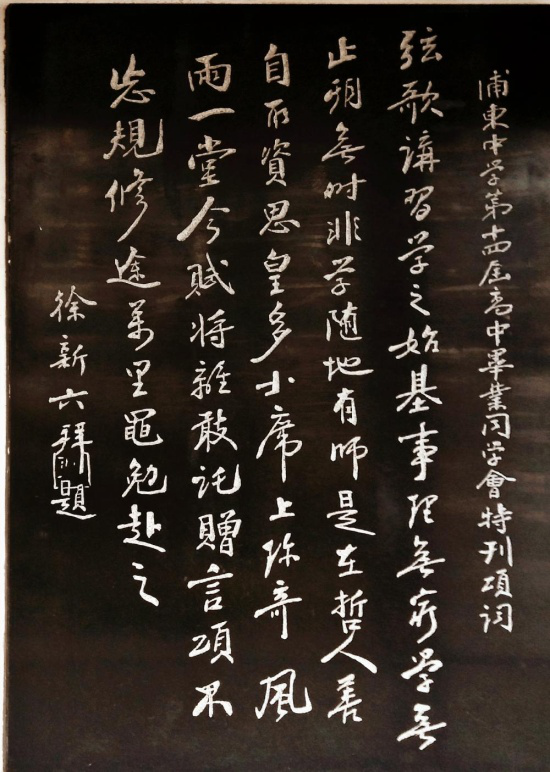 浦東中学第十四屆高中畢業同学會特刊頌词
弦歌講習学之始基事理無窮学無
止朔無时非学随地有师是在哲人善
自取資思皇多士席上珎奇風
雨一堂今赋将離敢託贈言頌不
忘規修途萬里黽勉赴之
徐新六拜題